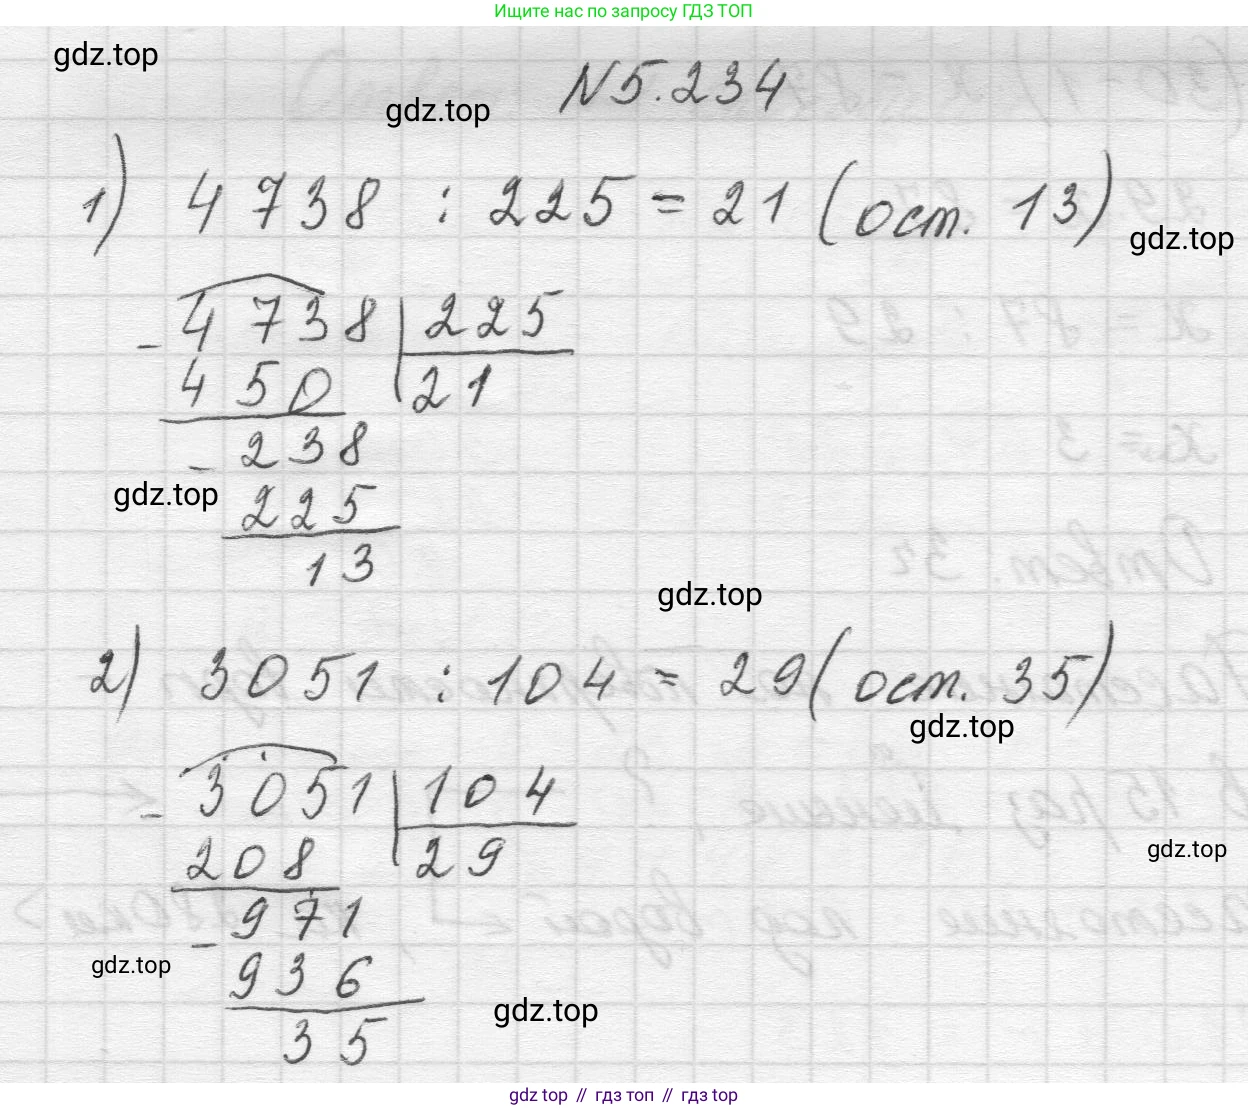 Ищите нас по запросу ГДЗ ТОП
gdz.top
N 5.234
gdz.top
1) 4738 : 225 = 21 (ост. 13)
gdz.top
- 4738 | 225
450 | 21
- 238
gdz.top
225
13
gdz.top
2) 3051 : 104 = 29 (ост. 35)
gdz.top
- 3051 | 104
208 | 29
gdz.top
- 971
gdz.top
936
gdz.top
35
gdz top // гдз топ // гдз top